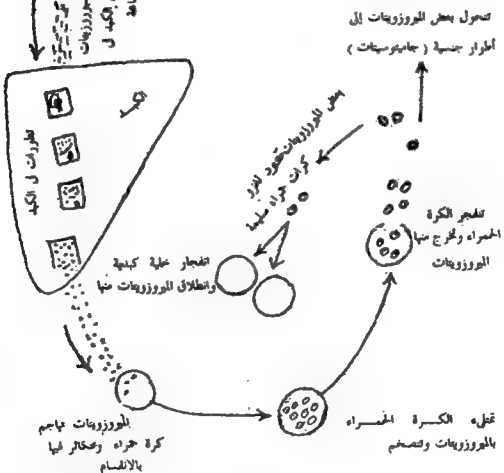 تتحول بعض الميروزويتات إلى
أطوار جنسية ( جاميتوسيتات )
الكبد
تطورات في الكبد
بعض الميروزويتات تعود لتغزو
كرات حمراء سليمة
تنفجر الكرة
الحمراء وتخرج منها
الميروزويتات
انفجار خلية كبدية
وانطلاق الميروزويتات منها
الميروزويتات تهاجم
كرة حمراء وتتكاثر فيها
بالانقسام
تمتلىء الكـــرة الحمـــراء
بالميروزويتات وتتضخم